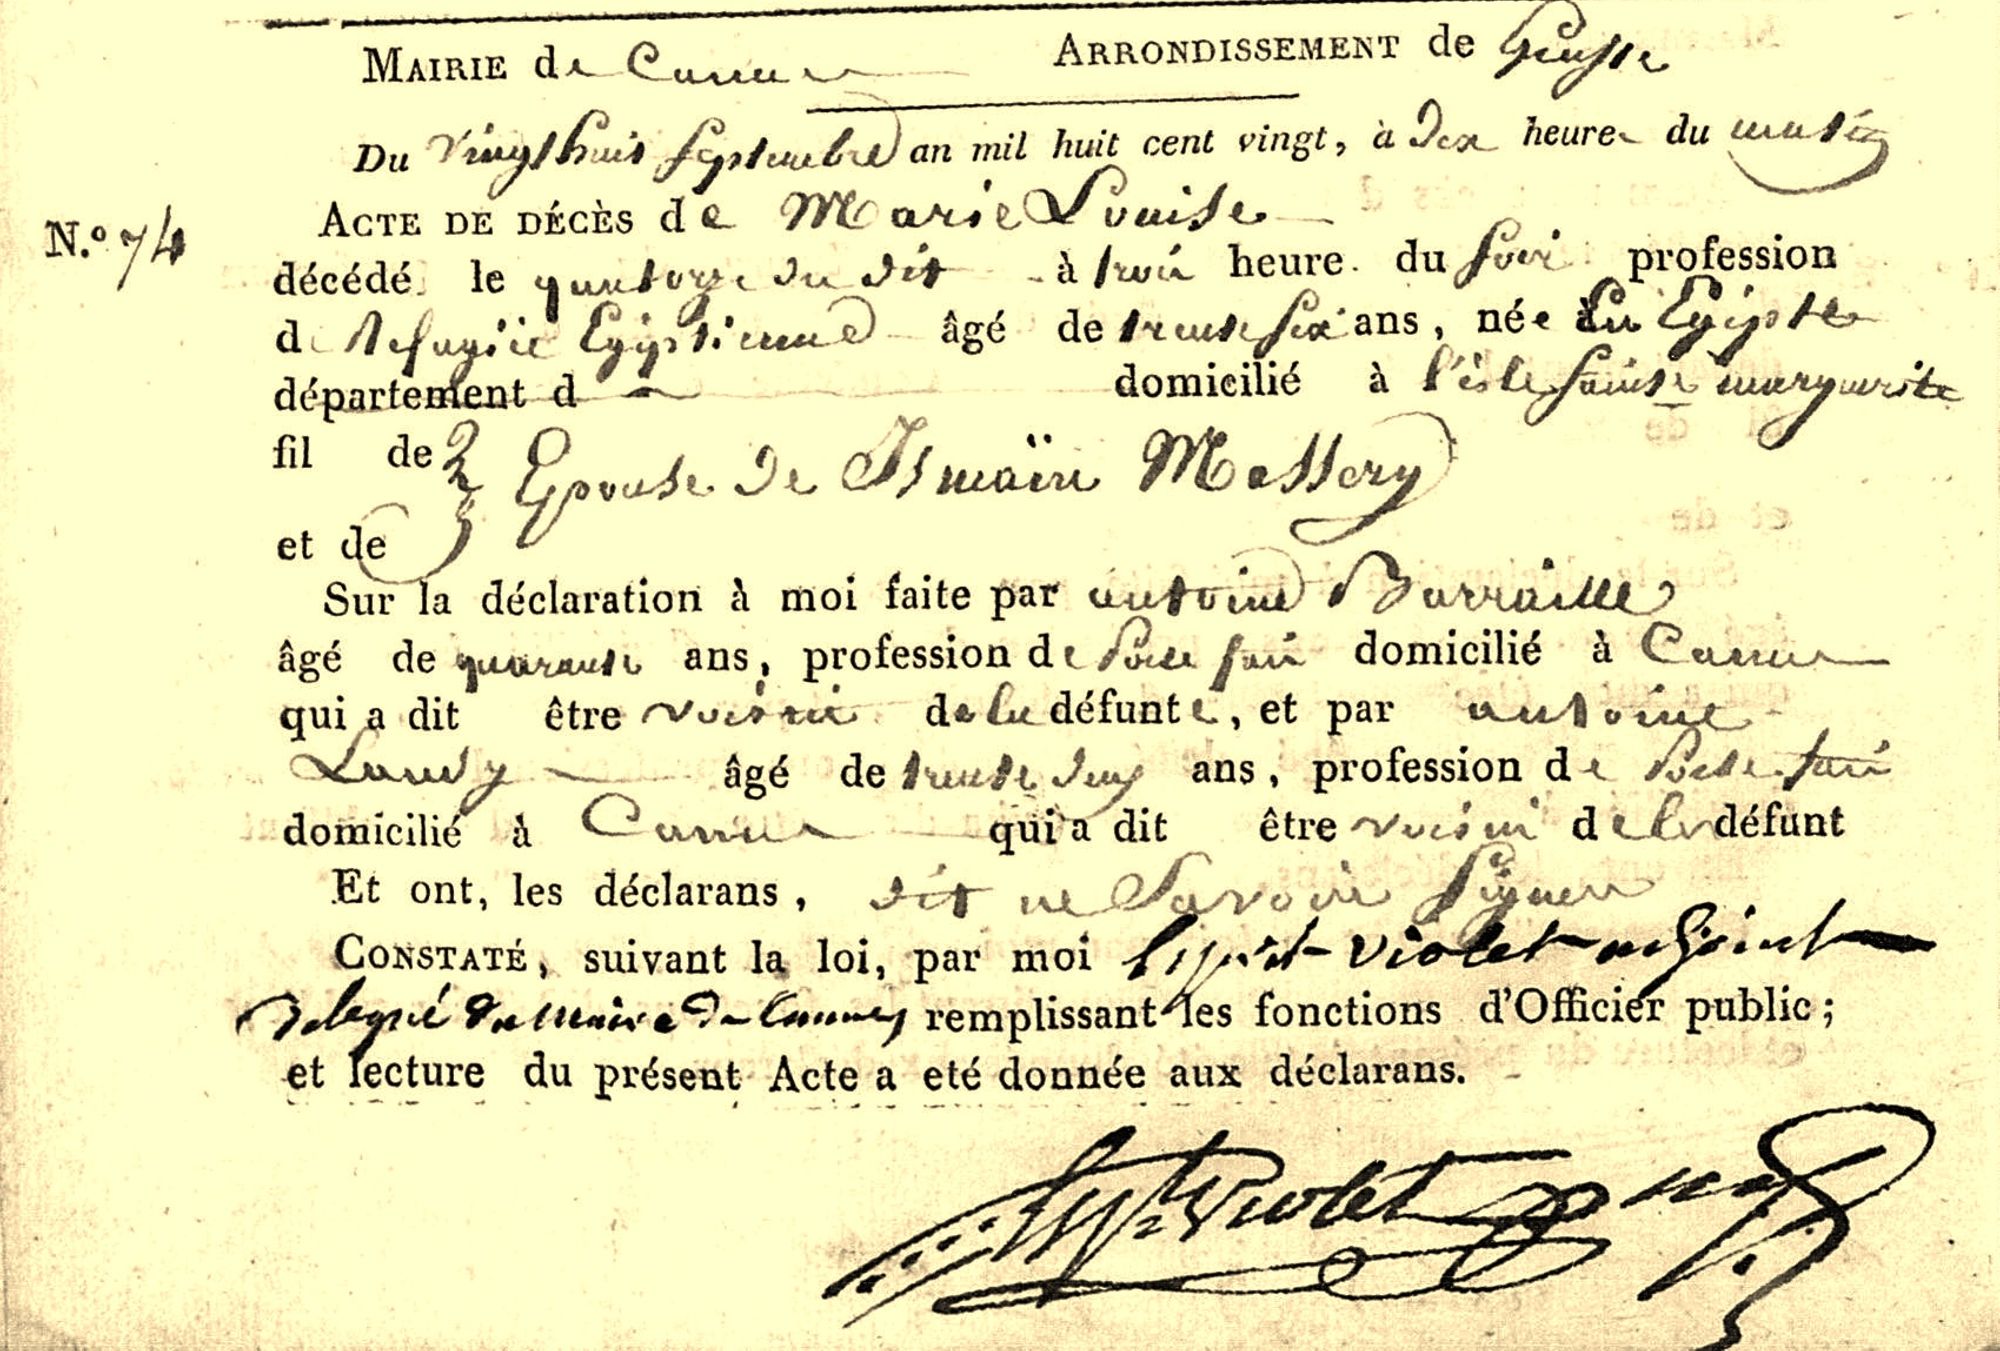 MAIRIE de Cannes ARRONDISSEMENT de Grasse
Du vingt huit septembre an mil huit cent vingt, à dix heures du matin
N.° 74
ACTE DE DÉCÈS de Marie Louise
décédé le quatorze du dit à trois heure du soir profession
d Refugiée Egiptienne âgé de trente six ans, née En Egipte
département d domicilié à l'isle Sainte marguerite
fil de Epouse de Ismaïn Messery
et de
Sur la déclaration à moi faite par antoine Barraille
âgé de quarante ans, profession de Porte faix domicilié à Cannes
qui a dit être voisin de la défunte, et par antoine
Landy âgé de trente deux ans, profession de Porte faix
domicilié à Cannes qui a dit être voisin de la défunt
Et ont, les déclarans, dit ne Savoir Signer
CONSTATÉ, suivant la loi, par moi Esprit Violet adjoint
delegué du Maire de Cannes remplissant les fonctions d'Officier public;
et lecture du présent Acte a eté donnée aux déclarans.
Violet